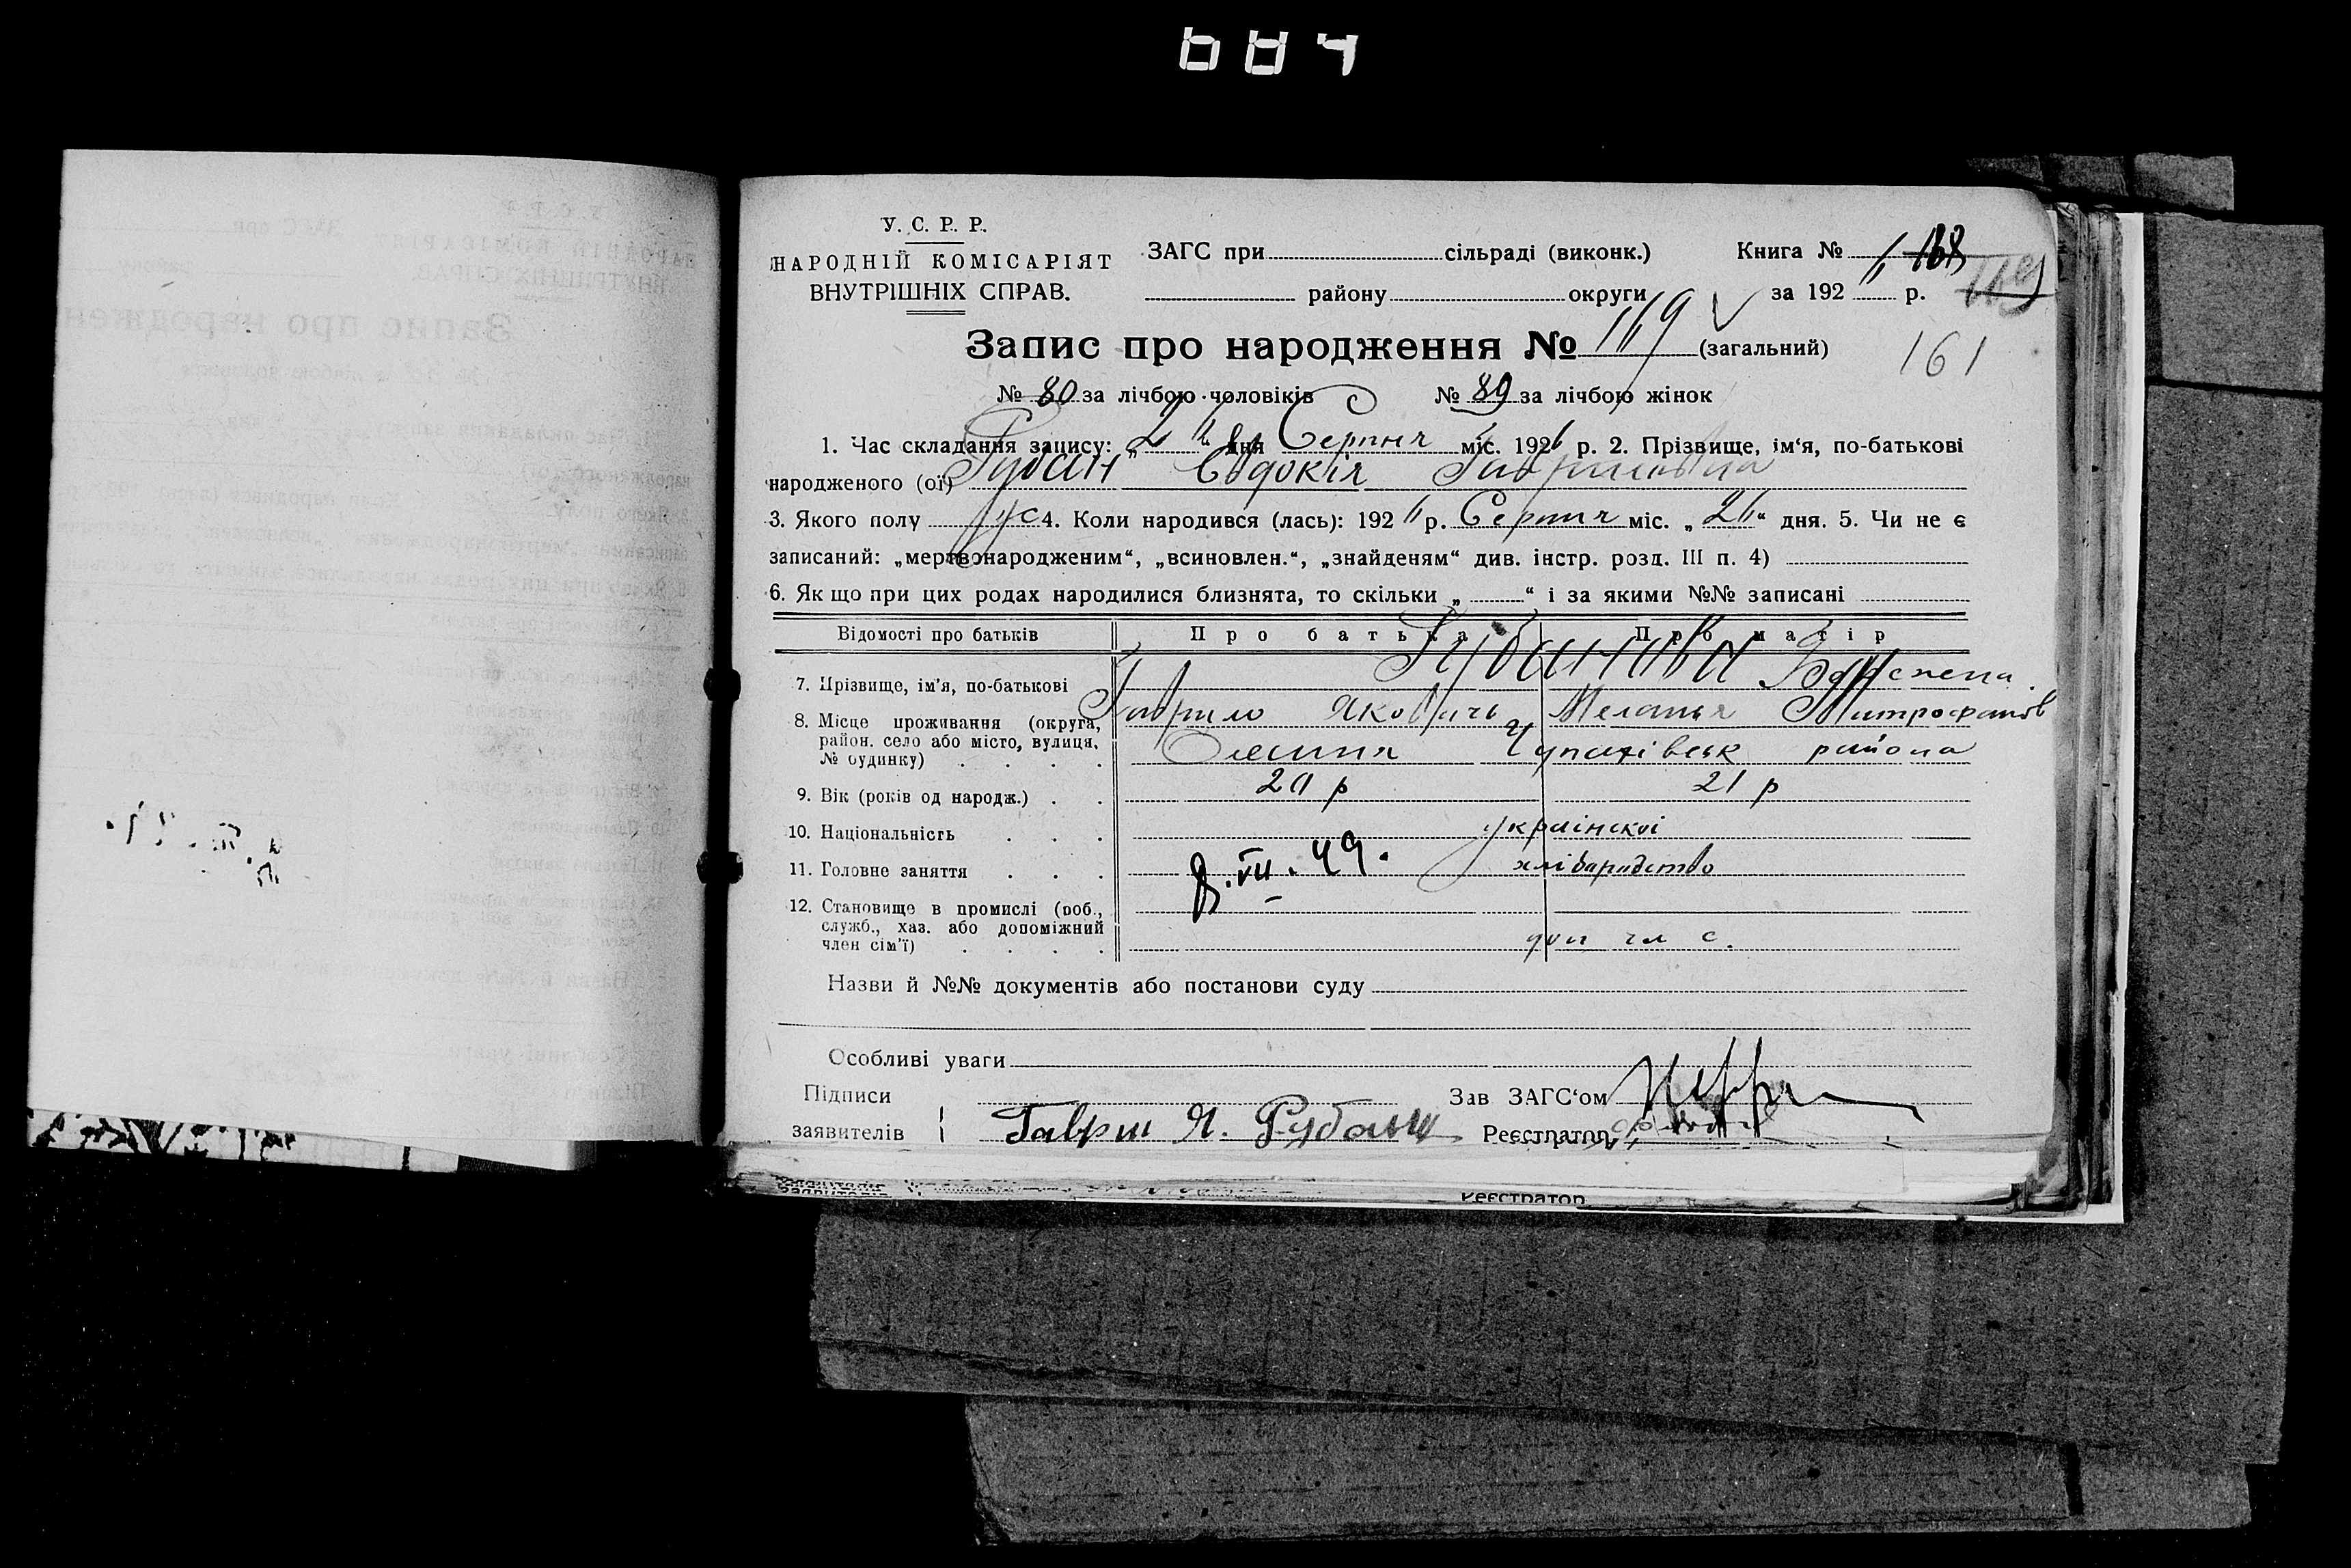 У. С. Р. Р.
НАРОДНІЙ КОМІСАРІЯТ
ВНУТРІШНІХ СПРАВ.
ЗАГС при сільраді (виконк.)
району округи
Книга №
за 192 р.
Запис про народження № 169 (загальний)
161
№ 80 за лічбою чоловіків № 89 за лічбою жінок
1. Час складання запису: „ “ дня Серпня міс. 1926 р. 2. Прізвище, ім‘я, по-батькові
народженого (ої) Рубан Євдокія Гавриловна
3. Якого полу жс 4. Коли народився (лась): 1926 р. Серпня міс. „ “ дня. 5. Чи не є
записаний: „мертвонародженим“, „всиновлен.“, „знайденям“ див. інстр. розд. III п. 4)
6. Як що при цих родах народилися близнята, то скільки „ “ і за якими №№ записані
Відомості про батьків Про батька Про матір
7. Прізвище, ім’я, по-батькові
8. Місце проживання (округа,
район, село або місто, вулиця,
№ будинку)
Гаврило Якович Меланья Митрофанов
Чупахівськ района
9. Вік (років од народж.) 20 р 21 р
10. Національність української
11. Головне заняття хліборобство
8. VII. 49.
12. Становище в промислі (роб.,
служб., хаз. або допоміжний
член сім’ї) доп чл с.
Назви й №№ документів або постанови суду
Особливі уваги
Підписи
заявителів Гаврил Я. Рубан
Зав ЗАГС‘ом
Реєстратор
Реєстратор